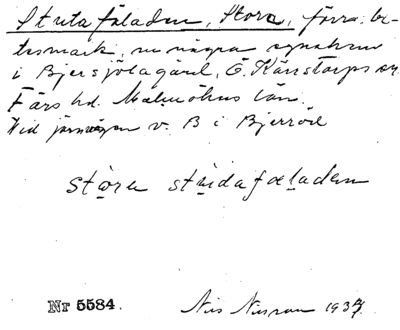 Strutafäladen, Stora, förra: be-
tesmark, nu några
i Bjersjölagård, Ö. Kärrstorps sn.
Färs hd. Malmöhus län.
Vid järnvägen v. B i Bjerröd
stora strudafæladen
Nr 5584.
Nils Nilsson 1937.